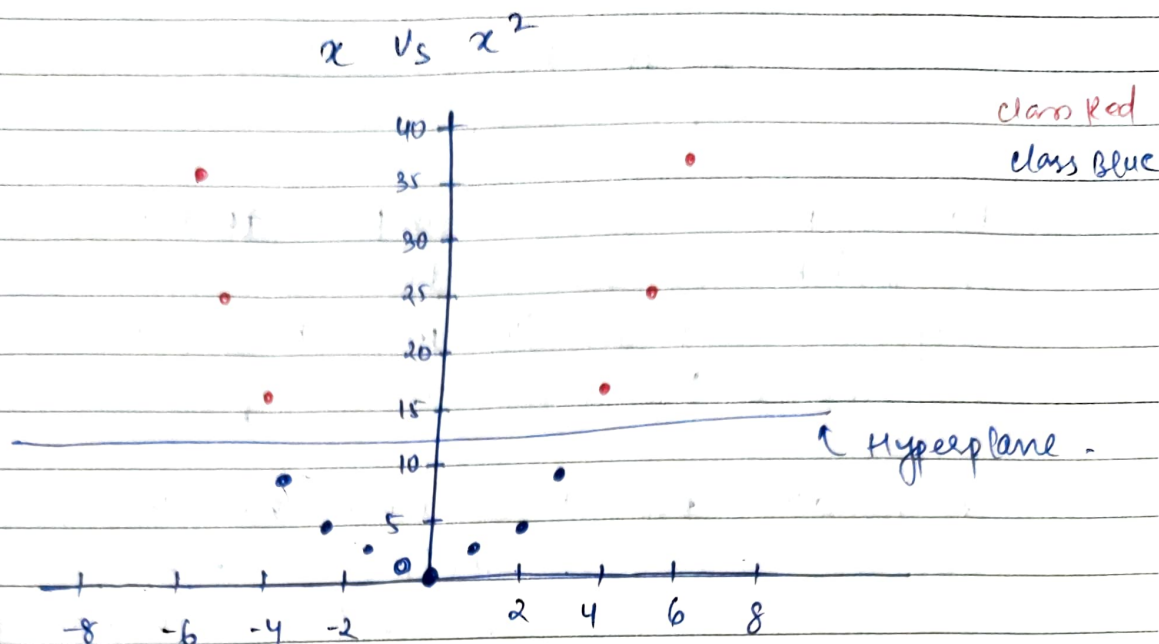 x Vs x²
Class Red
Class Blue
40
35
30
25
20
15
Hyperplane -
10
5
-8 -6 -4 -2 2 4 6 8